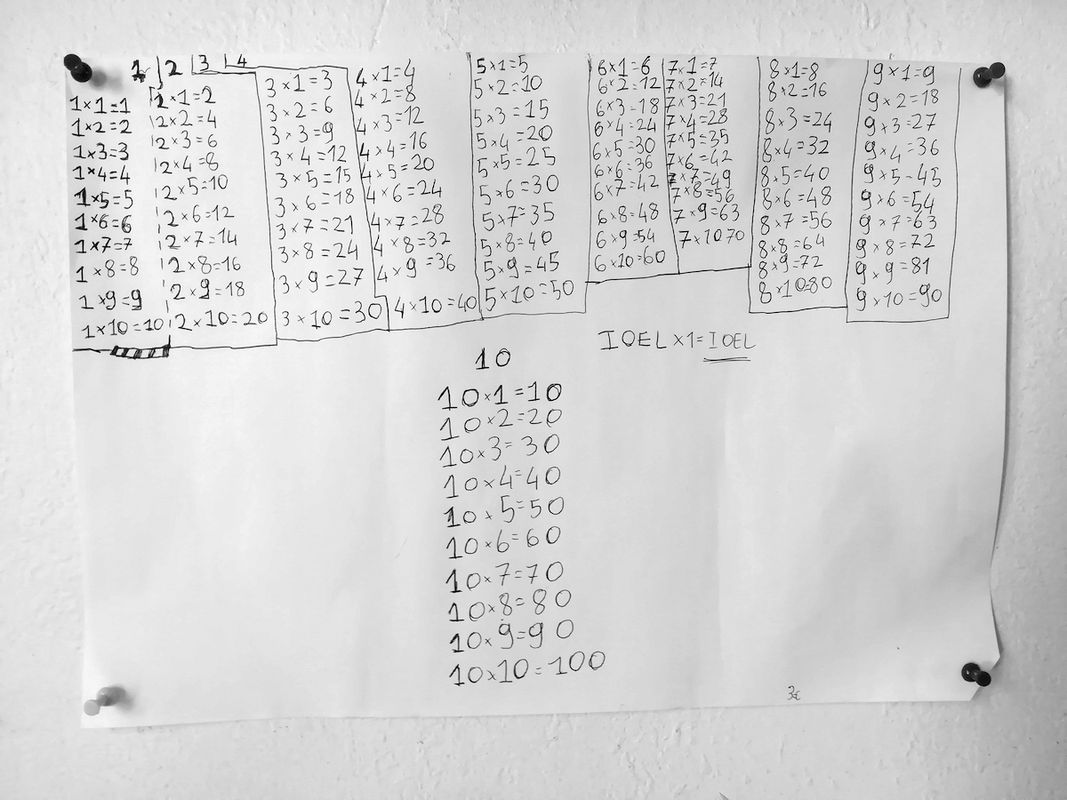 1 2 3 4
1×1=1
1×2=2
1×3=3
1×4=4
1×5=5
1×6=6
1×7=7
1×8=8
1×9=9
1×10=10
2×1=2
2×2=4
2×3=6
2×4=8
2×5=10
2×6=12
2×7=14
2×8=16
2×9=18
2×10=20
3×1=3
3×2=6
3×3=9
3×4=12
3×5=15
3×6=18
3×7=21
3×8=24
3×9=27
3×10=30
4×1=4
4×2=8
4×3=12
4×4=16
4×5=20
4×6=24
4×7=28
4×8=32
4×9=36
4×10=40
5×1=5
5×2=10
5×3=15
5×4=20
5×5=25
5×6=30
5×7=35
5×8=40
5×9=45
5×10=50
6×1=6
6×2=12
6×3=18
6×4=24
6×5=30
6×6=36
6×7=42
6×8=48
6×9=54
6×10=60
7×1=7
7×2=14
7×3=21
7×4=28
7×5=35
7×6=42
7×7=49
7×8=56
7×9=63
7×10 70
8×1=8
8×2=16
8×3=24
8×4=32
8×5=40
8×6=48
8×7=56
8×8=64
8×9=72
8×10=80
9×1=9
9×2=18
9×3=27
9×4=36
9×5=45
9×6=54
9×7=63
9×8=72
9×9=81
9×10=90
IOEL×1=IOEL
10
10×1=10
10×2=20
10×3=30
10×4=40
10×5=50
10×6=60
10×7=70
10×8=80
10×9=90
10×10=100